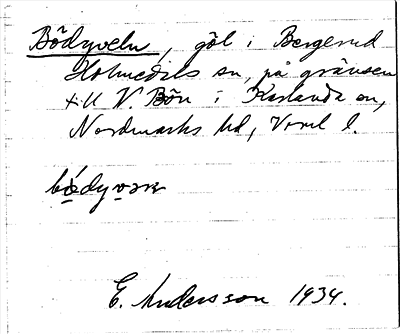 Bödyveln, göl i Bergerud
Holmedals sn, på gränsen
till V. Bön i Karlanda sn,
Nordmarks hd, Vrml l.
E. Andersson 1934.